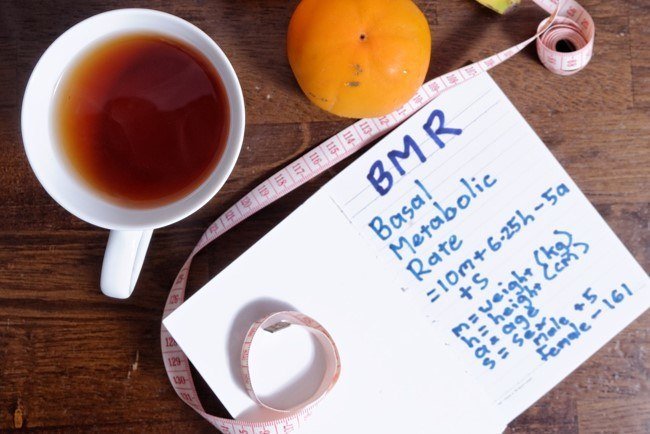 BMR
Basal
Metabolic
Rate
=10m+6.25h-5a
+s
m = weight (kg)
h = height (cm)
a = age
s = sex
male +5
female -161